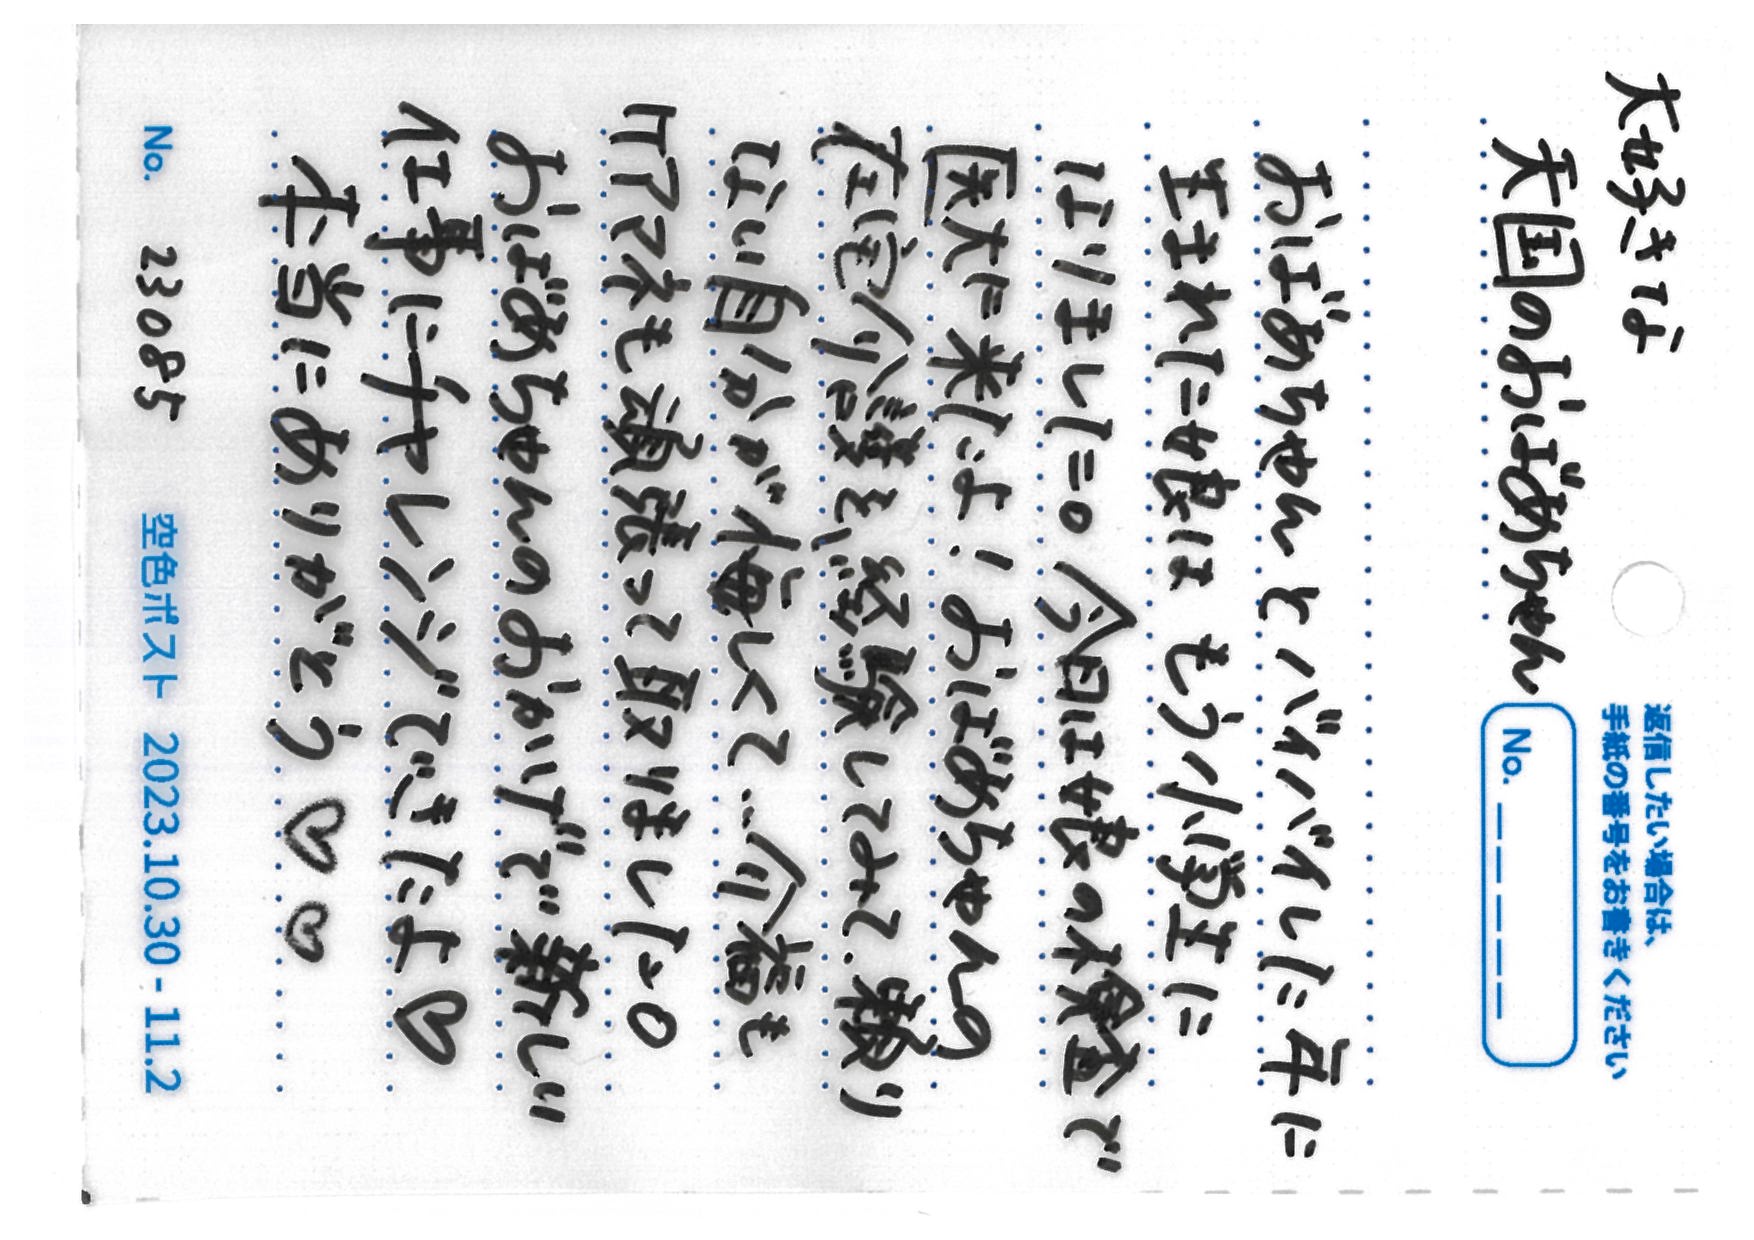 大好きな
天国のおばあちゃん
返信したい場合は、
手紙の番号をお書きください
No. _ _ _ _ _
おばあちゃんとバイバイした年に
生まれた娘は もう小学生に
なりました。今日は娘の検査で
医大に来たよ！おばあちゃんの
在宅介護を、経験してみて、頼り
ない自分が悔しくて…介福も
ケアマネも頑張って取りました。
おばあちゃんのおかげで新しい
仕事にチャレンジできたよ♡
本当にありがとう♡♡
No. 23085 空色ポスト 2023.10.30 - 11.2